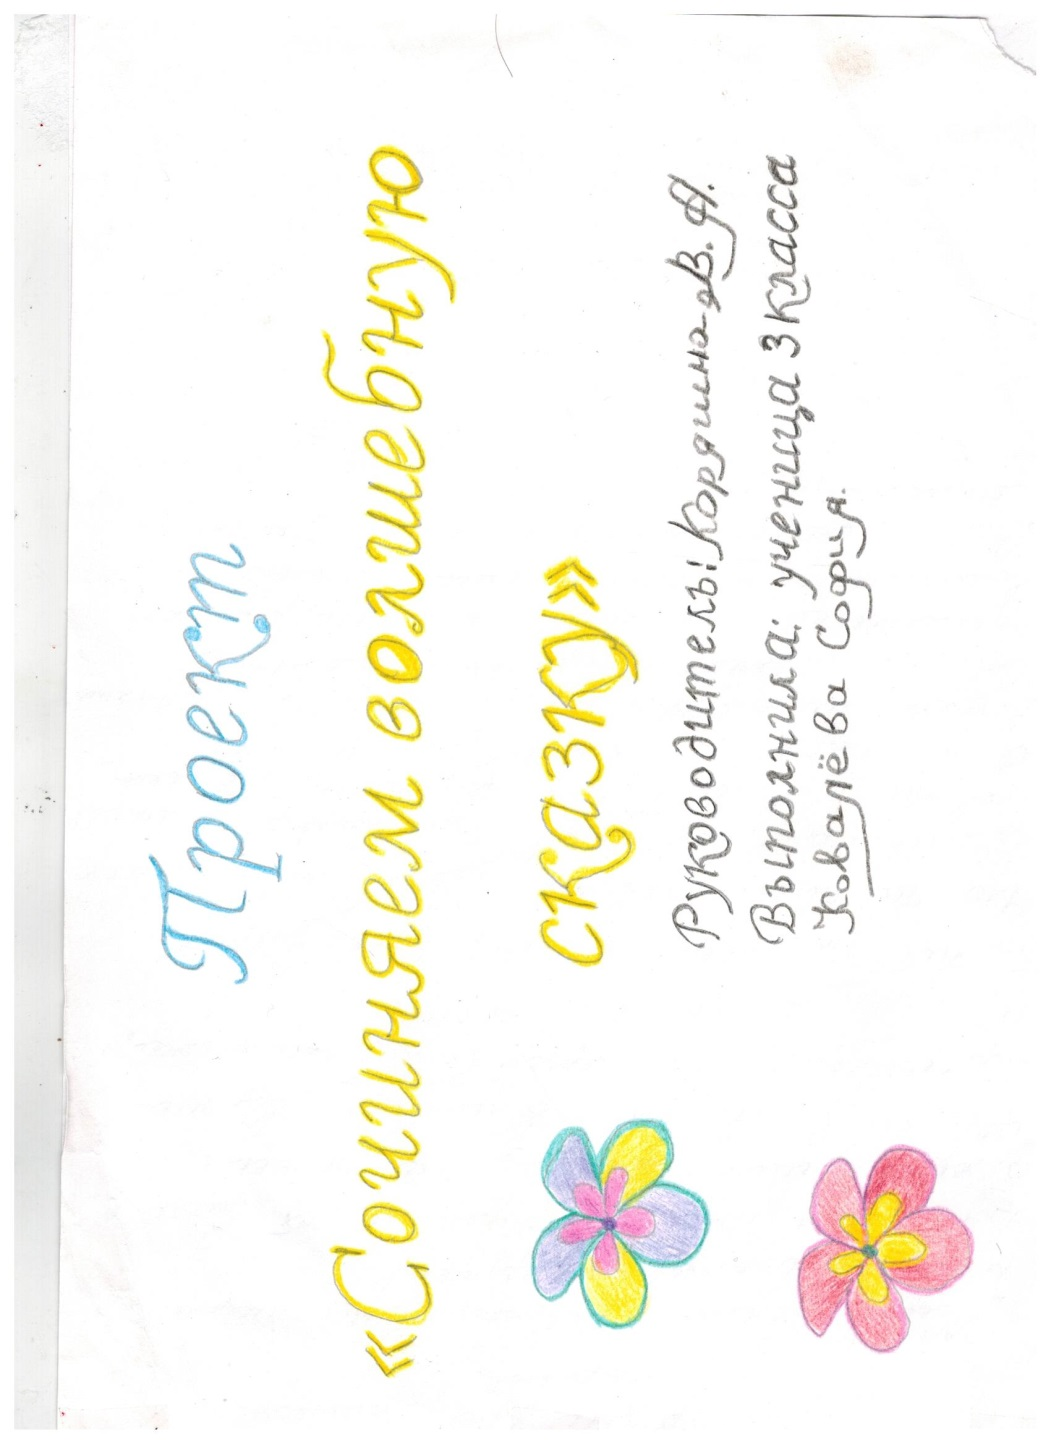 Проект
«Сочиняем волшебную
сказку»
Руководитель: Коряшина В. А.
Выполнила: ученица 3 класса
Ковалёва София.